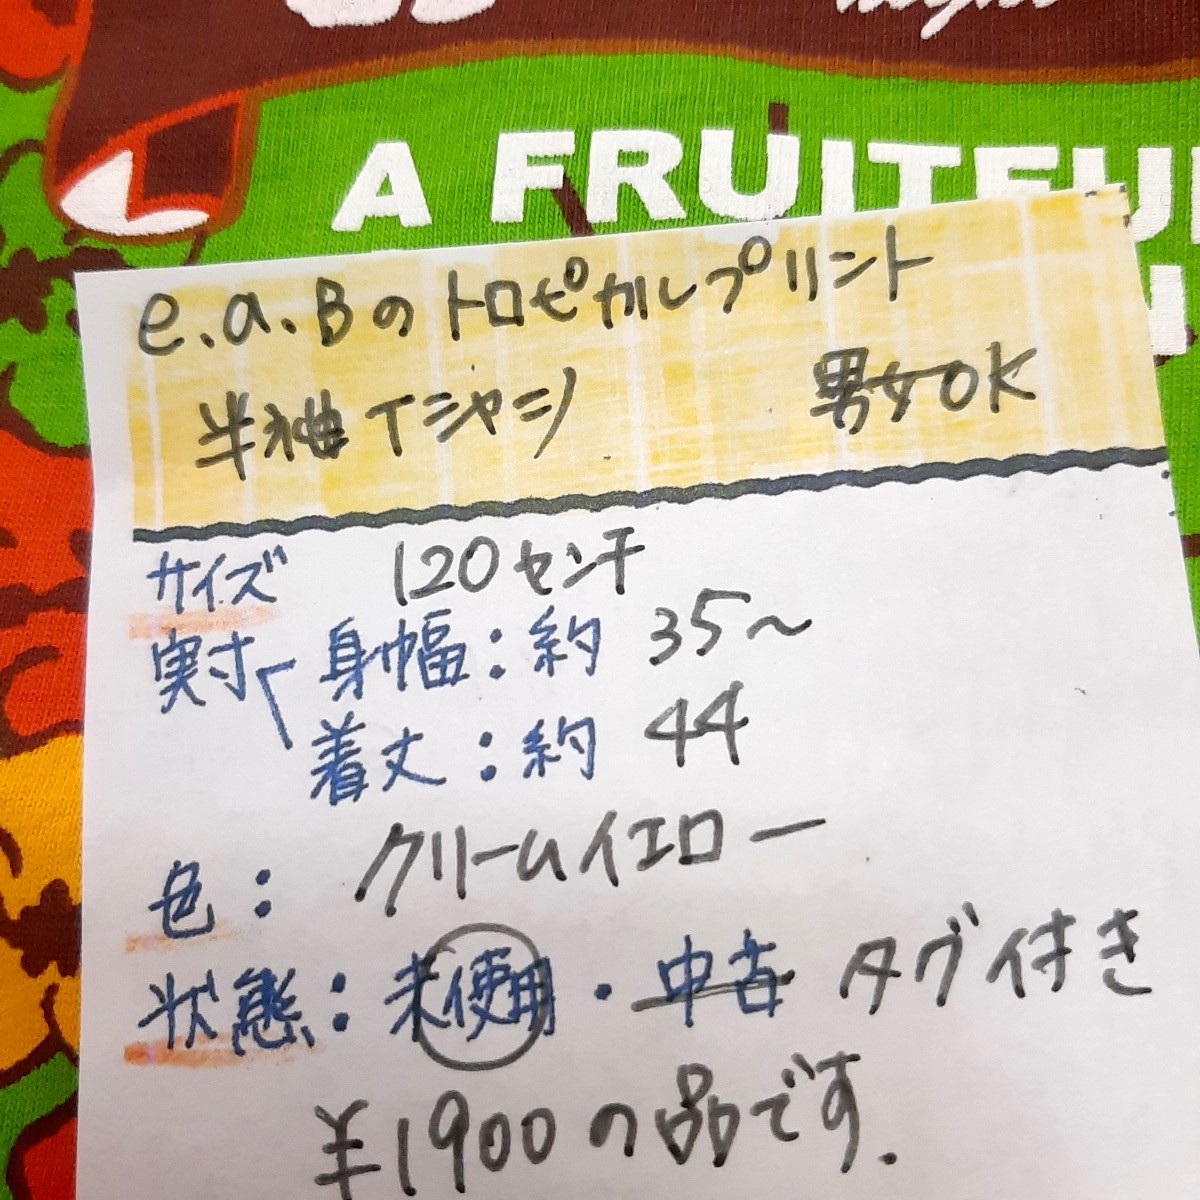 A FRUITFU
e.a.Bのトロピカルプリント
半袖Tシャツ 男女OK
サイズ 120センチ
実寸 身幅:約 35〜
着丈:約 44
色: クリームイエロー
状態: 未使用・中古 タグ付き
¥1900の品です.